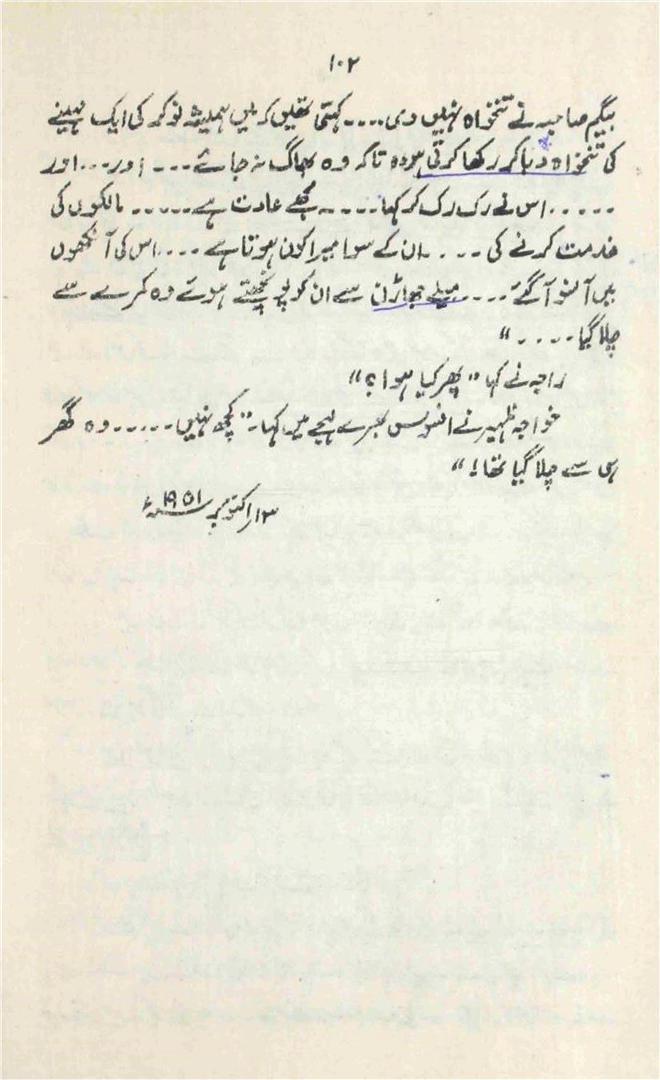 ۱۰۲
بیگم صاحبہ نے تنخواہ نہیں دی .... کہتی تھیں کہ میں ہمیشہ نوکر کی ایک مہینے
کی تنخواہ دبا کر رکھا کرتی ہوں تاکہ وہ بھاگ نہ جائے ... اور ... اور
..... اس نے رک رک کر کہا .... مجھے عادت ہے ..... مالکوں کی
خدمت کرنے کی .... ان کے سوا میرا کون ہوتا ہے .... اس کی آنکھوں
میں آنسو آگئے .... میلے جھاڑن سے ان کو پونچھتے ہوئے وہ کمرے سے
چلا گیا ...."
راجہ نے کہا "پھر کیا ہوا؟"
خواجہ ظہیر نے افسوس بھرے لہجے میں کہا۔ "کچھ نہیں ..... وہ گھر
ہی سے چلا گیا تھا!"
۱۳ر اکتوبر ۱۹۵۱ء